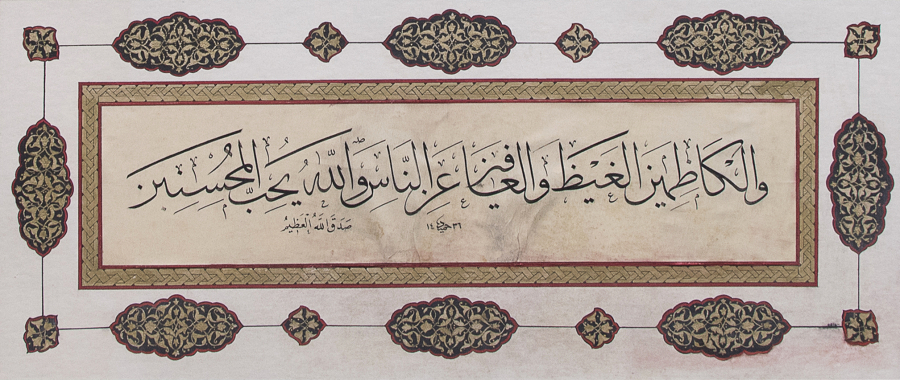 والكاظمين الغيظ والعافين عن الناس والله يحب المحسنين
صدق الله العظيم ١٤٣٦